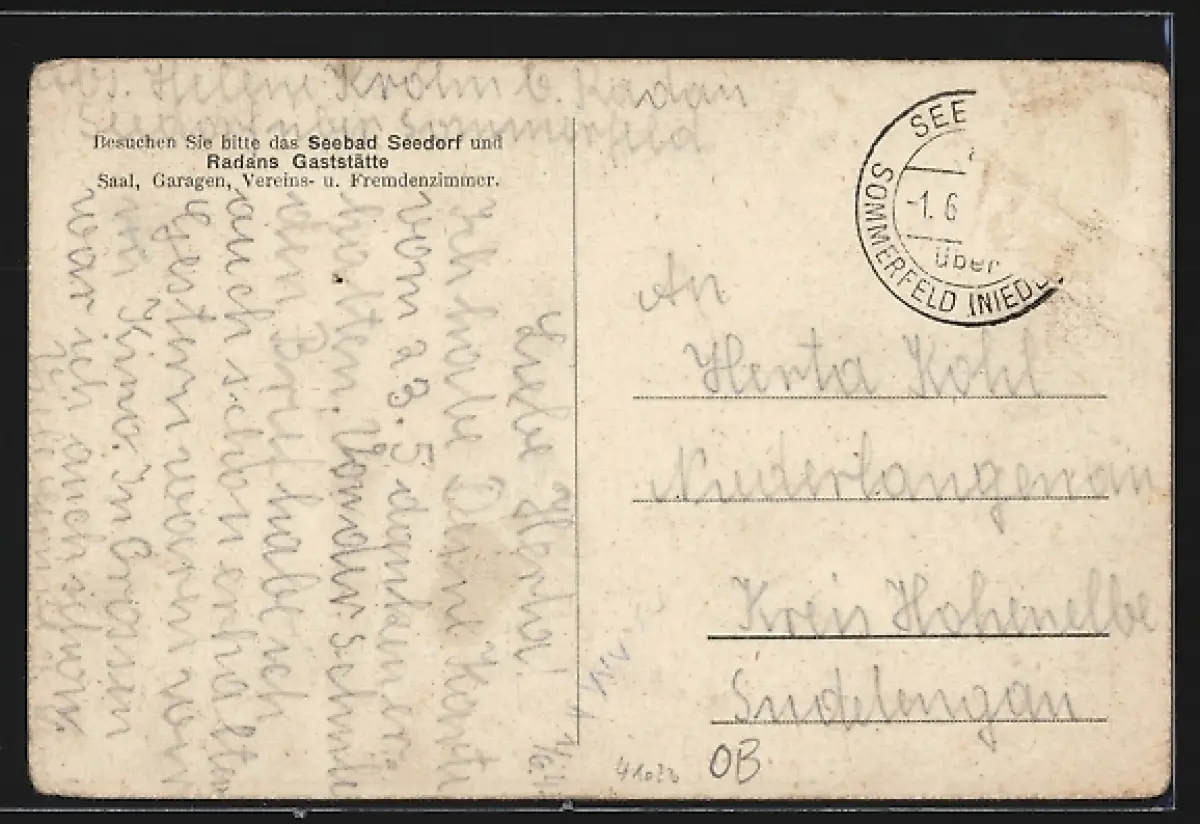 Abs. Helene Krohn b. Radan
Seedorf über Sommerfeld
Besuchen Sie bitte das Seebad Seedorf und
Radans Gaststätte
Saal, Garagen, Vereins- u. Fremdenzimmer.
SEE
-1.6
über
SOMMERFELD (NIEDE
An
Herta Kohl
Niederlangenau
Kreis Hohenelbe
Sudetengau
OB
Liebe Herta!
Ich habe Deine Karte
vom 23. 5 dankend er-
halten. Von der Schule
den Brief habe ich
auch schon erhalten
Gestern waren wir
im Kino. In Crossen
war ich auch schon.